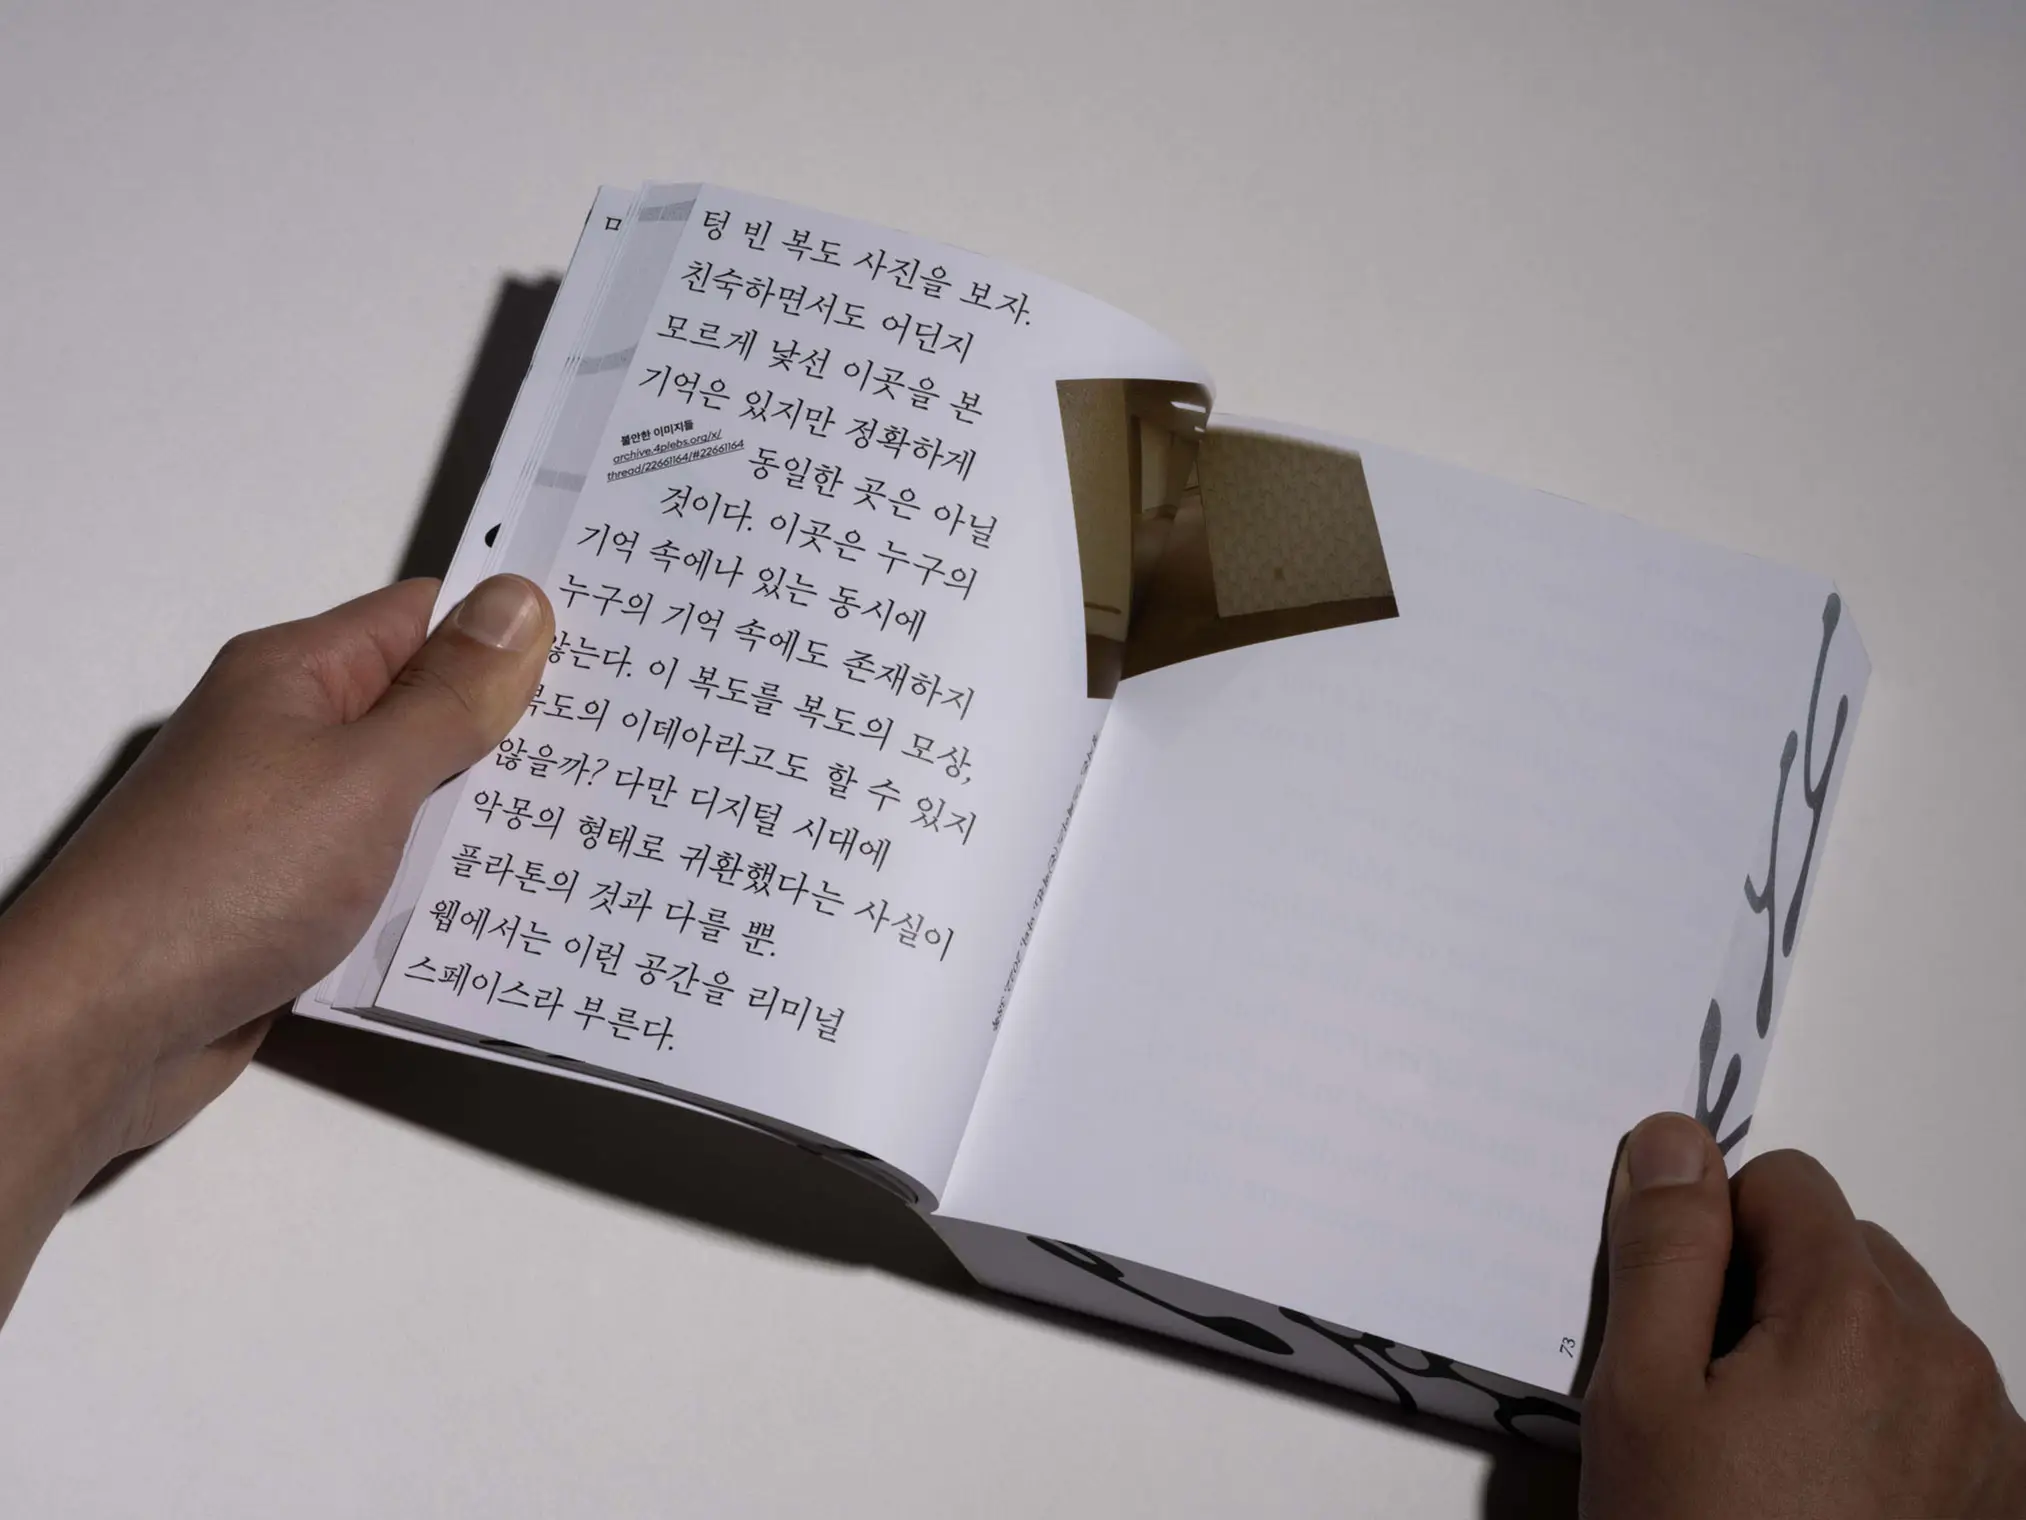 텅 빈 복도 사진을 보자.
친숙하면서도 어딘지
모르게 낯선 이곳을 본
기억은 있지만 정확하게
불안한 이미지들
archive.4plebs.org/x/
thread/22661164/#22661164
동일한 곳은 아닐
것이다. 이곳은 누구의
기억 속에나 있는 동시에
누구의 기억 속에도 존재하지
않는다. 이 복도를 복도의 모상,
복도의 이데아라고도 할 수 있지
않을까? 다만 디지털 시대에
악몽의 형태로 귀환했다는 사실이
플라톤의 것과 다를 뿐.
웹에서는 이런 공간을 리미널
스페이스라 부른다.
73